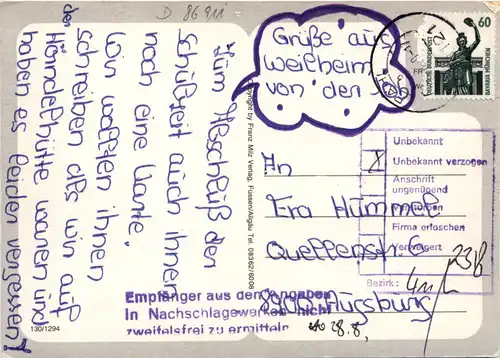 D 86911
Grüße aus
Weilheim
von den
60
Zum Abschluß der
Schulzeit auch Ihnen
noch eine Karte.
Wir wollten ihnen
schreiben als wir auf
der
Hörndlehütte waren und
haben es leider vergessen!
Copyright by Franz Milz Verlag, Füssen/Allgäu Tel. 08362/6008
An
Fra Hummel
Quellenstr. 6
8900 Augsburg
Unbekannt
X Unbekannt verzogen
Anschrift
ungenügend
Verstorben
Firma erloschen
Verweigert
Bezirk:
Empfänger aus den Angaben
in Nachschlagewerken nicht
zweifelsfrei zu ermitteln
28.8.
130/1294